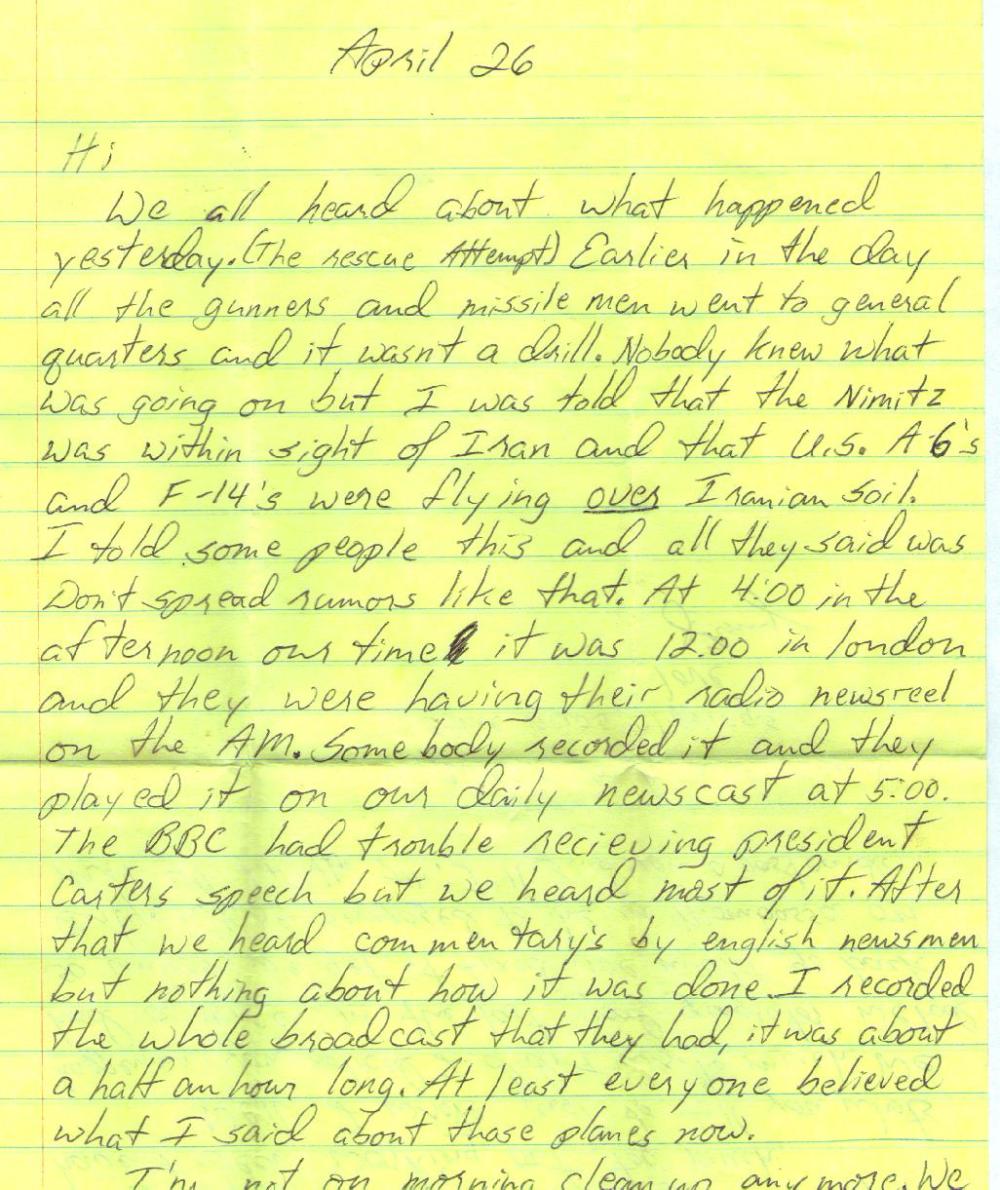 April 26
Hi
We all heard about what happened
yesterday. (The rescue Attempt) Earlier in the day
all the gunners and missile men went to general
quarters and it wasnt a drill. Nobody knew what
was going on but I was told that the Nimitz
was within sight of Iran and that U.S. A-6's
and F-14's were flying over Iranian soil.
I told some people this and all they said was
Don't spread rumors like that. At 4:00 in the
afternoon our time it was 12:00 in london
and they were having their radio newsreel
on the AM. Somebody recorded it and they
played it on our daily newscast at 5:00.
The BBC had trouble recieving president
Carters speech but we heard most of it. After
that we heard commentary's by english newsmen
but nothing about how it was done. I recorded
the whole broadcast that they had, it was about
a half an hour long. At least everyone believed
what I said about those planes now.
I'm not on morning clean up any more. We